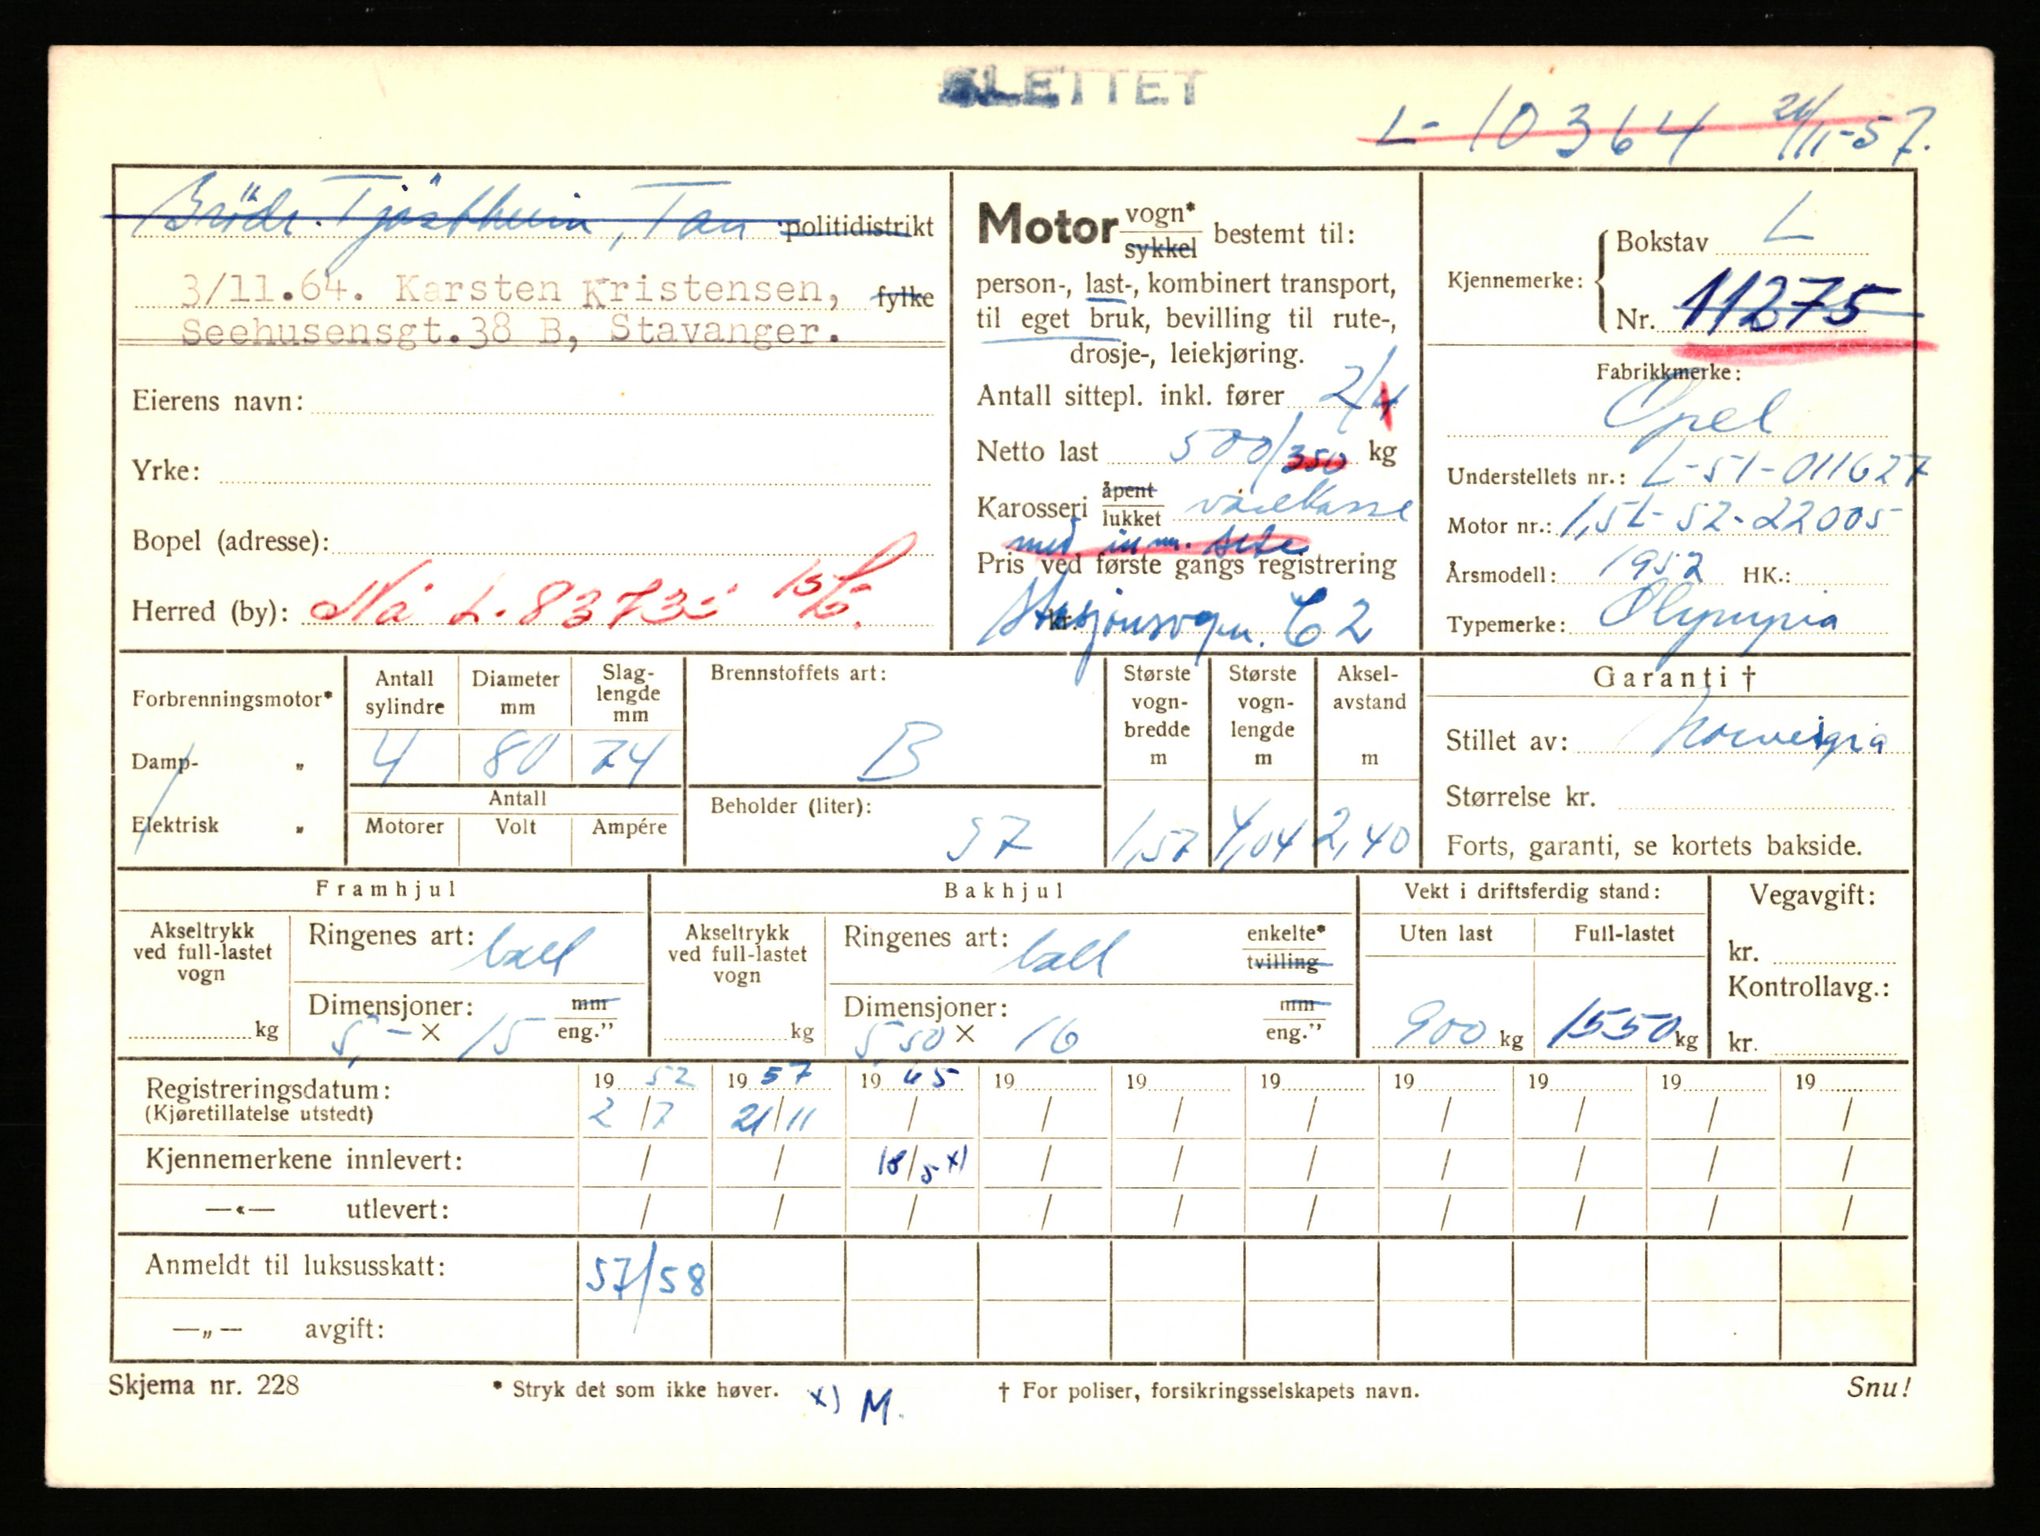 SLETTET
L- 10364 21/11-57.
Brödr. Tjöstheim, Tau politidistrikt
3/11.64. Karsten Kristensen, fylke
Seehusensgt.38 B, Stavanger.
Eierens navn:
Yrke:
Bopel (adresse):
Herred (by): Nå L-83735
Motor vogn* sykkel bestemt til:
person-, last-, kombinert transport,
til eget bruk, bevilling til rute-,
drosje-, leiekjøring.
Antall sittepl. inkl. fører 2/4
Netto last 500/350 kg
Karosseri åpent lukket varekasse
med inn. sete
Pris ved første gangs registrering
kr. Stasjonsvogn. C2
Kjennemerke: Bokstav L
Nr. 11275
Fabrikkmerke:
Opel
Understellets nr.: L-51-011627
Motor nr.: 1,5L-52-22005
Årsmodell: 1952 HK.:
Typemerke: Olympia
Forbrenningsmotor*
Damp- „
Elektrisk „
Antall sylindre Diameter mm Slag-lengde mm
4 80 74
Antall
Motorer Volt Ampére
Brennstoffets art:
B
Beholder (liter):
37
Største vogn-bredde m
1,57
Største vogn-lengde m
4,04
Aksel-avstand m
2,40
Garanti †
Stillet av: Norvegia
Størrelse kr.
Forts, garanti, se kortets bakside.
Framhjul
Akseltrykk ved full-lastet vogn
kg
Ringenes art: ball
Dimensjoner: mm
5,- × 15 eng."
Bakhjul
Akseltrykk ved full-lastet vogn
kg
Ringenes art: ball enkelte* tvilling
Dimensjoner: mm
5,50 × 16 eng."
Vekt i driftsferdig stand:
Uten last Full-lastet
900 kg 1550 kg
Vegavgift:
kr.
Kontrollavg.:
kr.
Registreringsdatum: 19 52 19 57 19 65 19 19 19 19 19 19 19
(Kjøretillatelse utstedt) 2/7 21/11 / / / / / / / /
Kjennemerkene innlevert: / / 18/5 x) / / / / / / /
—«— utlevert: / / / / / / / / / /
Anmeldt til luksusskatt: 57/58
—„— avgift:
Skjema nr. 228 * Stryk det som ikke høver. x) M. † For poliser, forsikringsselskapets navn. Snu!